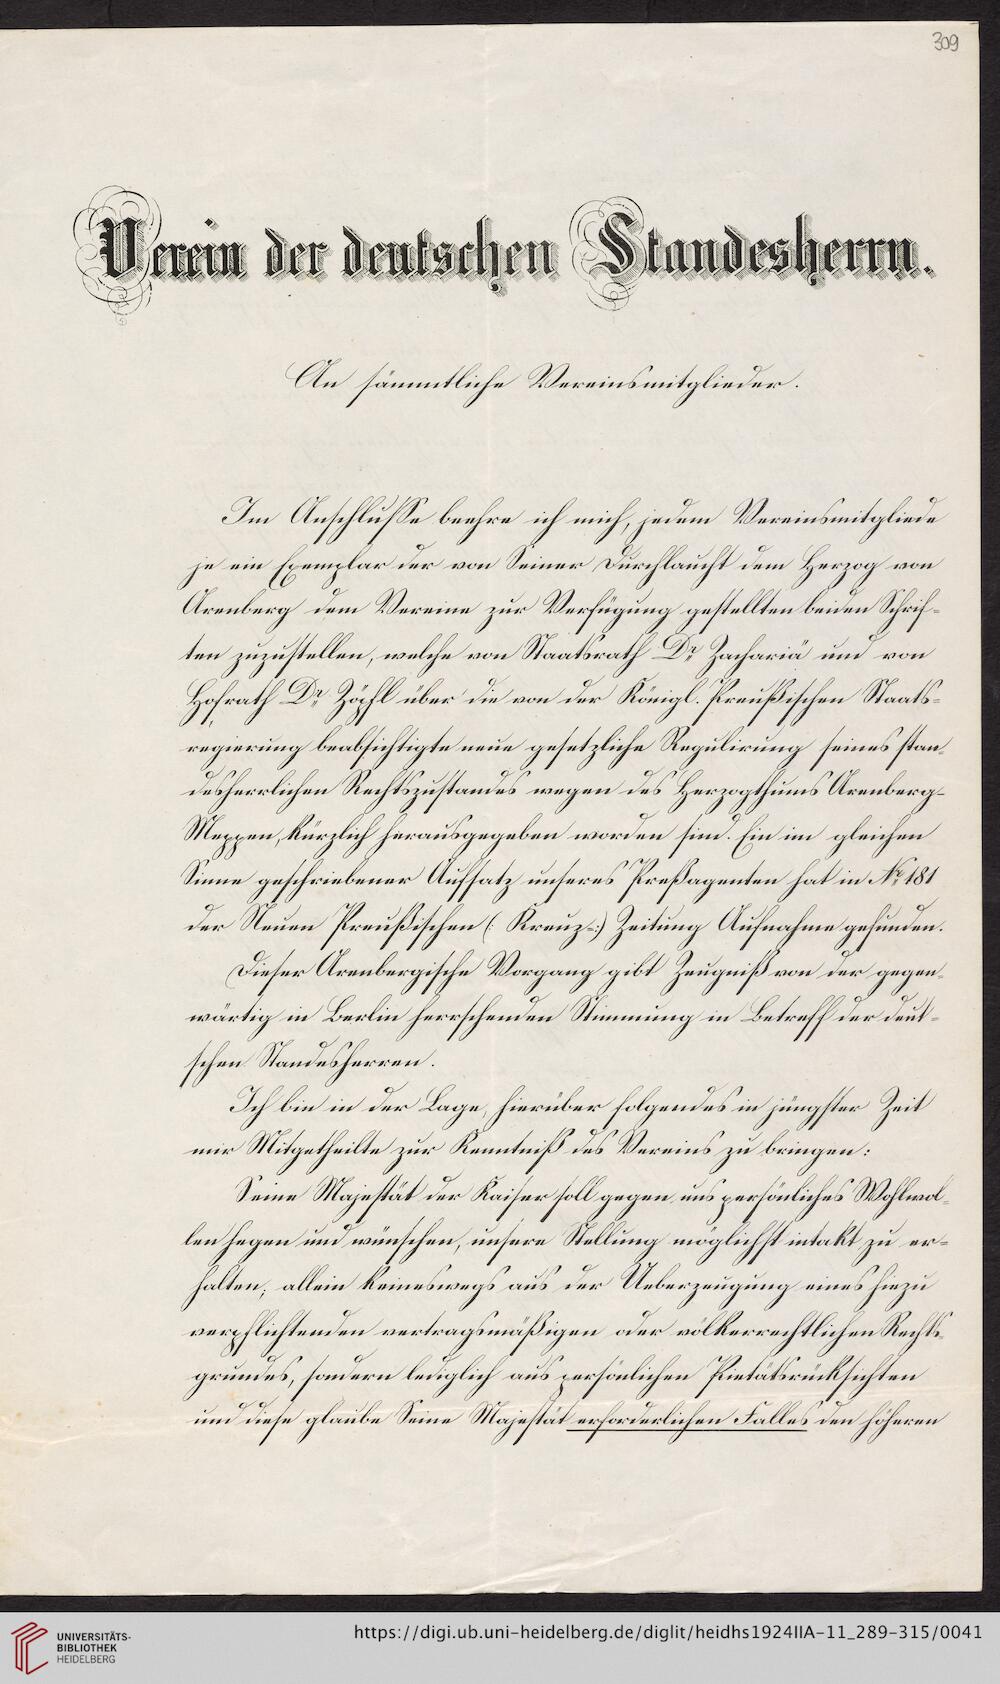 309
Verein der deutschen Standesherrn.
An sämmtliche Vereinsmitglieder.
Im Anschlusse beehre ich mich, jedem Vereinsmitgliede
je ein Exemplar der von Seiner Durchlaucht dem Herzog von
Arenberg dem Vereine zur Verfügung gestellten beiden Schrif-
ten zuzustellen, welche von Staatsrath Dr. Zachariä und von
Hofrath Dr. Zöpfl über die von der Königl. Preußischen Staats-
regierung beabsichtigte neue gesetzliche Regulirung seines stan-
desherrlichen Rechtszustandes wegen des Herzogthums Arenberg-
Meppen, kürzlich herausgegeben worden sind. Ein im gleichen
Sinne geschriebener Aufsatz unseres Preßagenten hat in No. 181
der Neuen Preußischen (: Kreuz-:) Zeitung Aufnahme gefunden.
Dieser Arenbergische Vorgang gibt Zeugniß von der gegen-
wärtig in Berlin herrschenden Stimmung in Betreff der deut-
schen Standesherren.
Ich bin in der Lage, hierüber folgendes in jüngster Zeit
mir Mitgetheilte zur Kenntniß des Vereins zu bringen:
Seine Majestät der Kaiser soll gegen uns persönliches Wohlwol-
len hegen und wünschen, unsere Stellung möglichst intakt zu er-
halten; allein keineswegs aus der Ueberzeugung eines hiezu
verpflichtenden vertragsmäßigen oder völkerrechtlichen Rechts-
grundes, sondern lediglich aus persönlichen Pietätsrücksichten
und diese glaube Seine Majestät erforderlichen Falles den höheren
UNIVERSITÄTS-
BIBLIOTHEK
HEIDELBERG
https://digi.ub.uni-heidelberg.de/diglit/heidhs1924IIA-11_289-315/0041